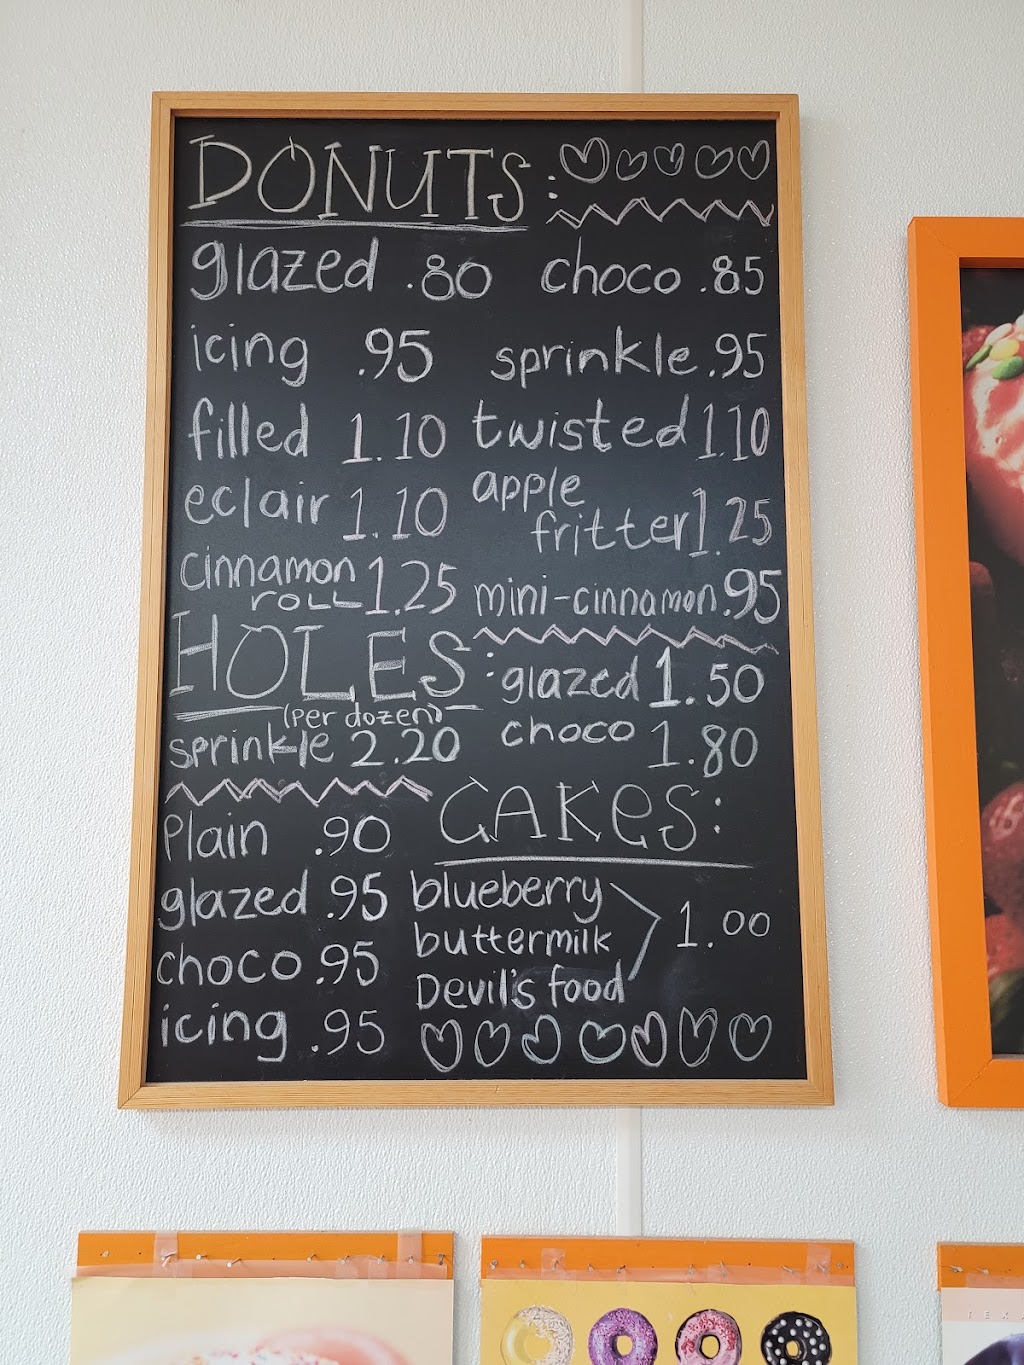 DONUTS:
glazed .80 choco .85
icing .95 sprinkle .95
filled 1.10 twisted 1.10
eclair 1.10 apple fritter 1.25
cinnamon roll 1.25 mini-cinnamon .95
HOLES:
(per dozen)
glazed 1.50
sprinkle 2.20 choco 1.80
CAKES:
Plain .90
glazed .95
choco .95
icing .95
blueberry
buttermilk 1.00
Devil's food